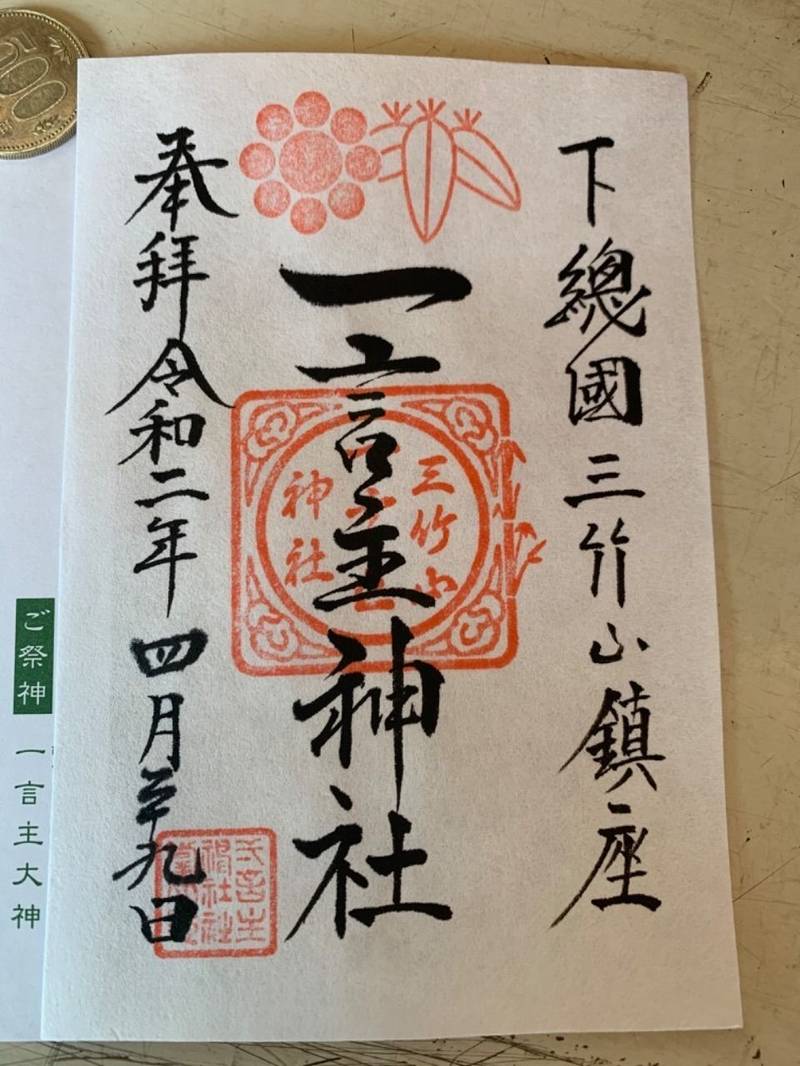 下總國三竹山鎮座
一言主神社
奉拜令和二年四月二十九日
三竹山
神社
ご祭神
一言主大神
500